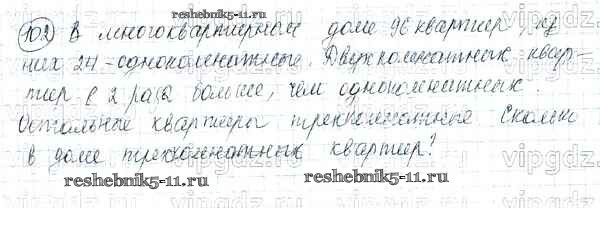 102 В многоквартирном доме 96 квартир, из
них 24 - однокомнатные. Двухкомнатных квар-
тир в 2 раза больше, чем однокомнатных.
Остальные квартиры трехкомнатные Сколько
в доме трехкомнатных квартир?
reshebnik5-11.ru
reshebnik5-11.ru
reshebnik5-11.ru
vipgdz.
vipgdz.
vipgdz.